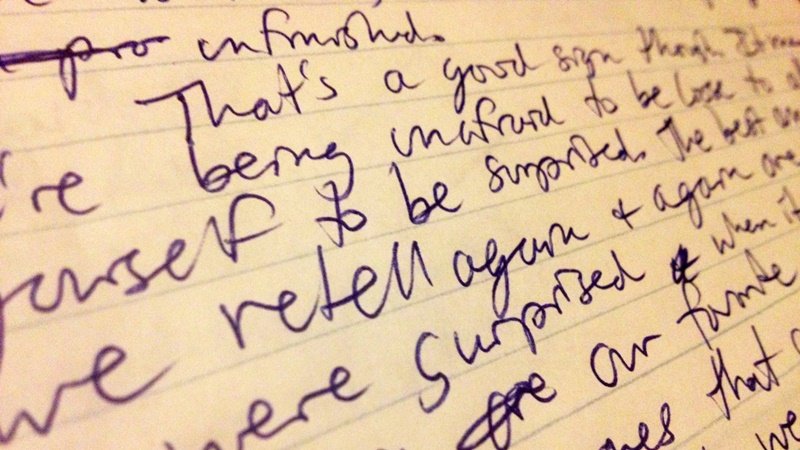 unfinished.
That's a good sign though
're being unafraid to be
yourself to be surprised. The best
we retell again & again are
were surprised & when it
are our favorite
that
we